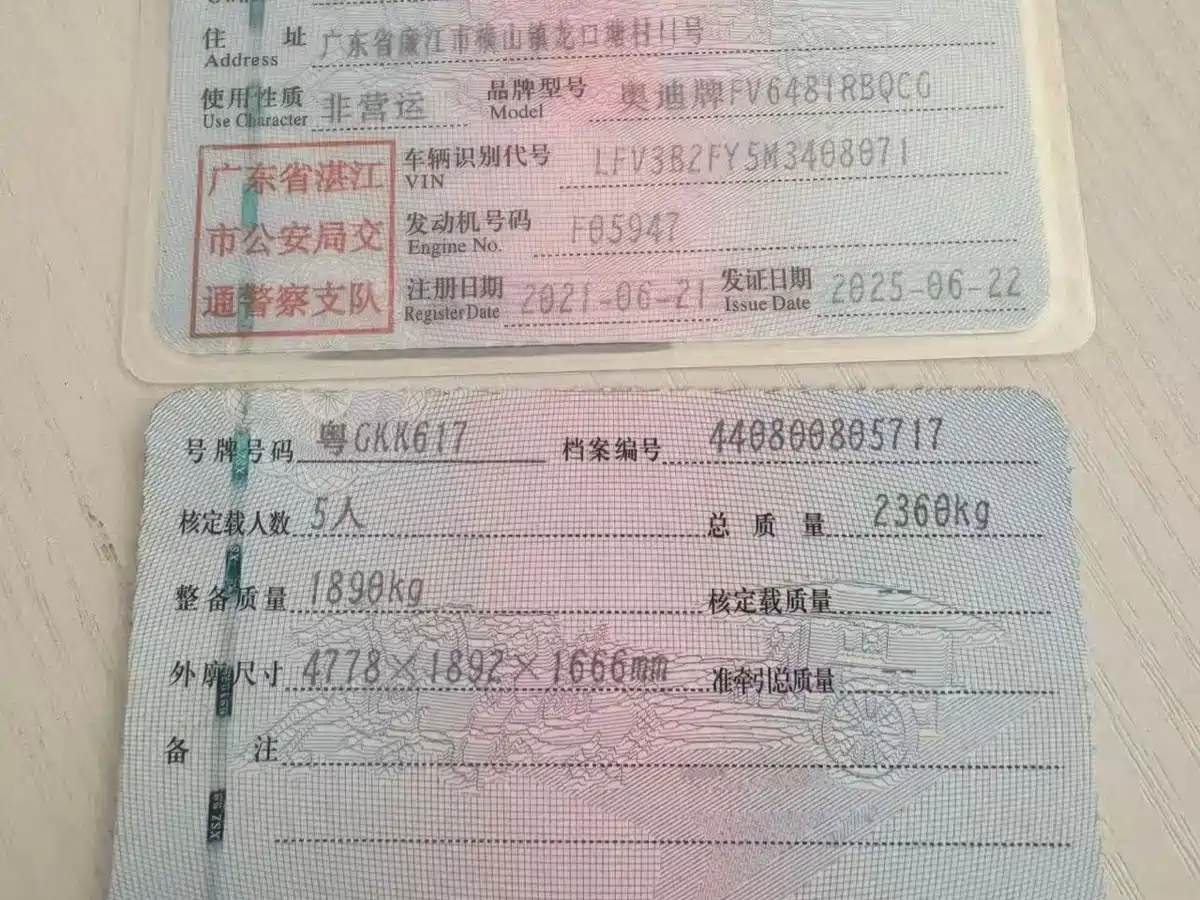 住 址 广东省廉江市横山镇龙口塘村11号
Address
使用性质 非营运 品牌型号 奥迪牌FV6481RBQCG
Use Character Model
广东省湛江
市公安局交
通警察支队
车辆识别代号 LFV3B2FY5M3408071
VIN
发动机号码 F05947
Engine No.
注册日期 2021-06-21 发证日期 2025-06-22
Register Date Issue Date
号牌号码 粤GKK617 档案编号 440800805717
核定载人数 5人 总 质 量 2360kg
整备质量 1890kg 核定载质量 --
外廓尺寸 4778×1892×1666mm 准牵引总质量 --
备 注